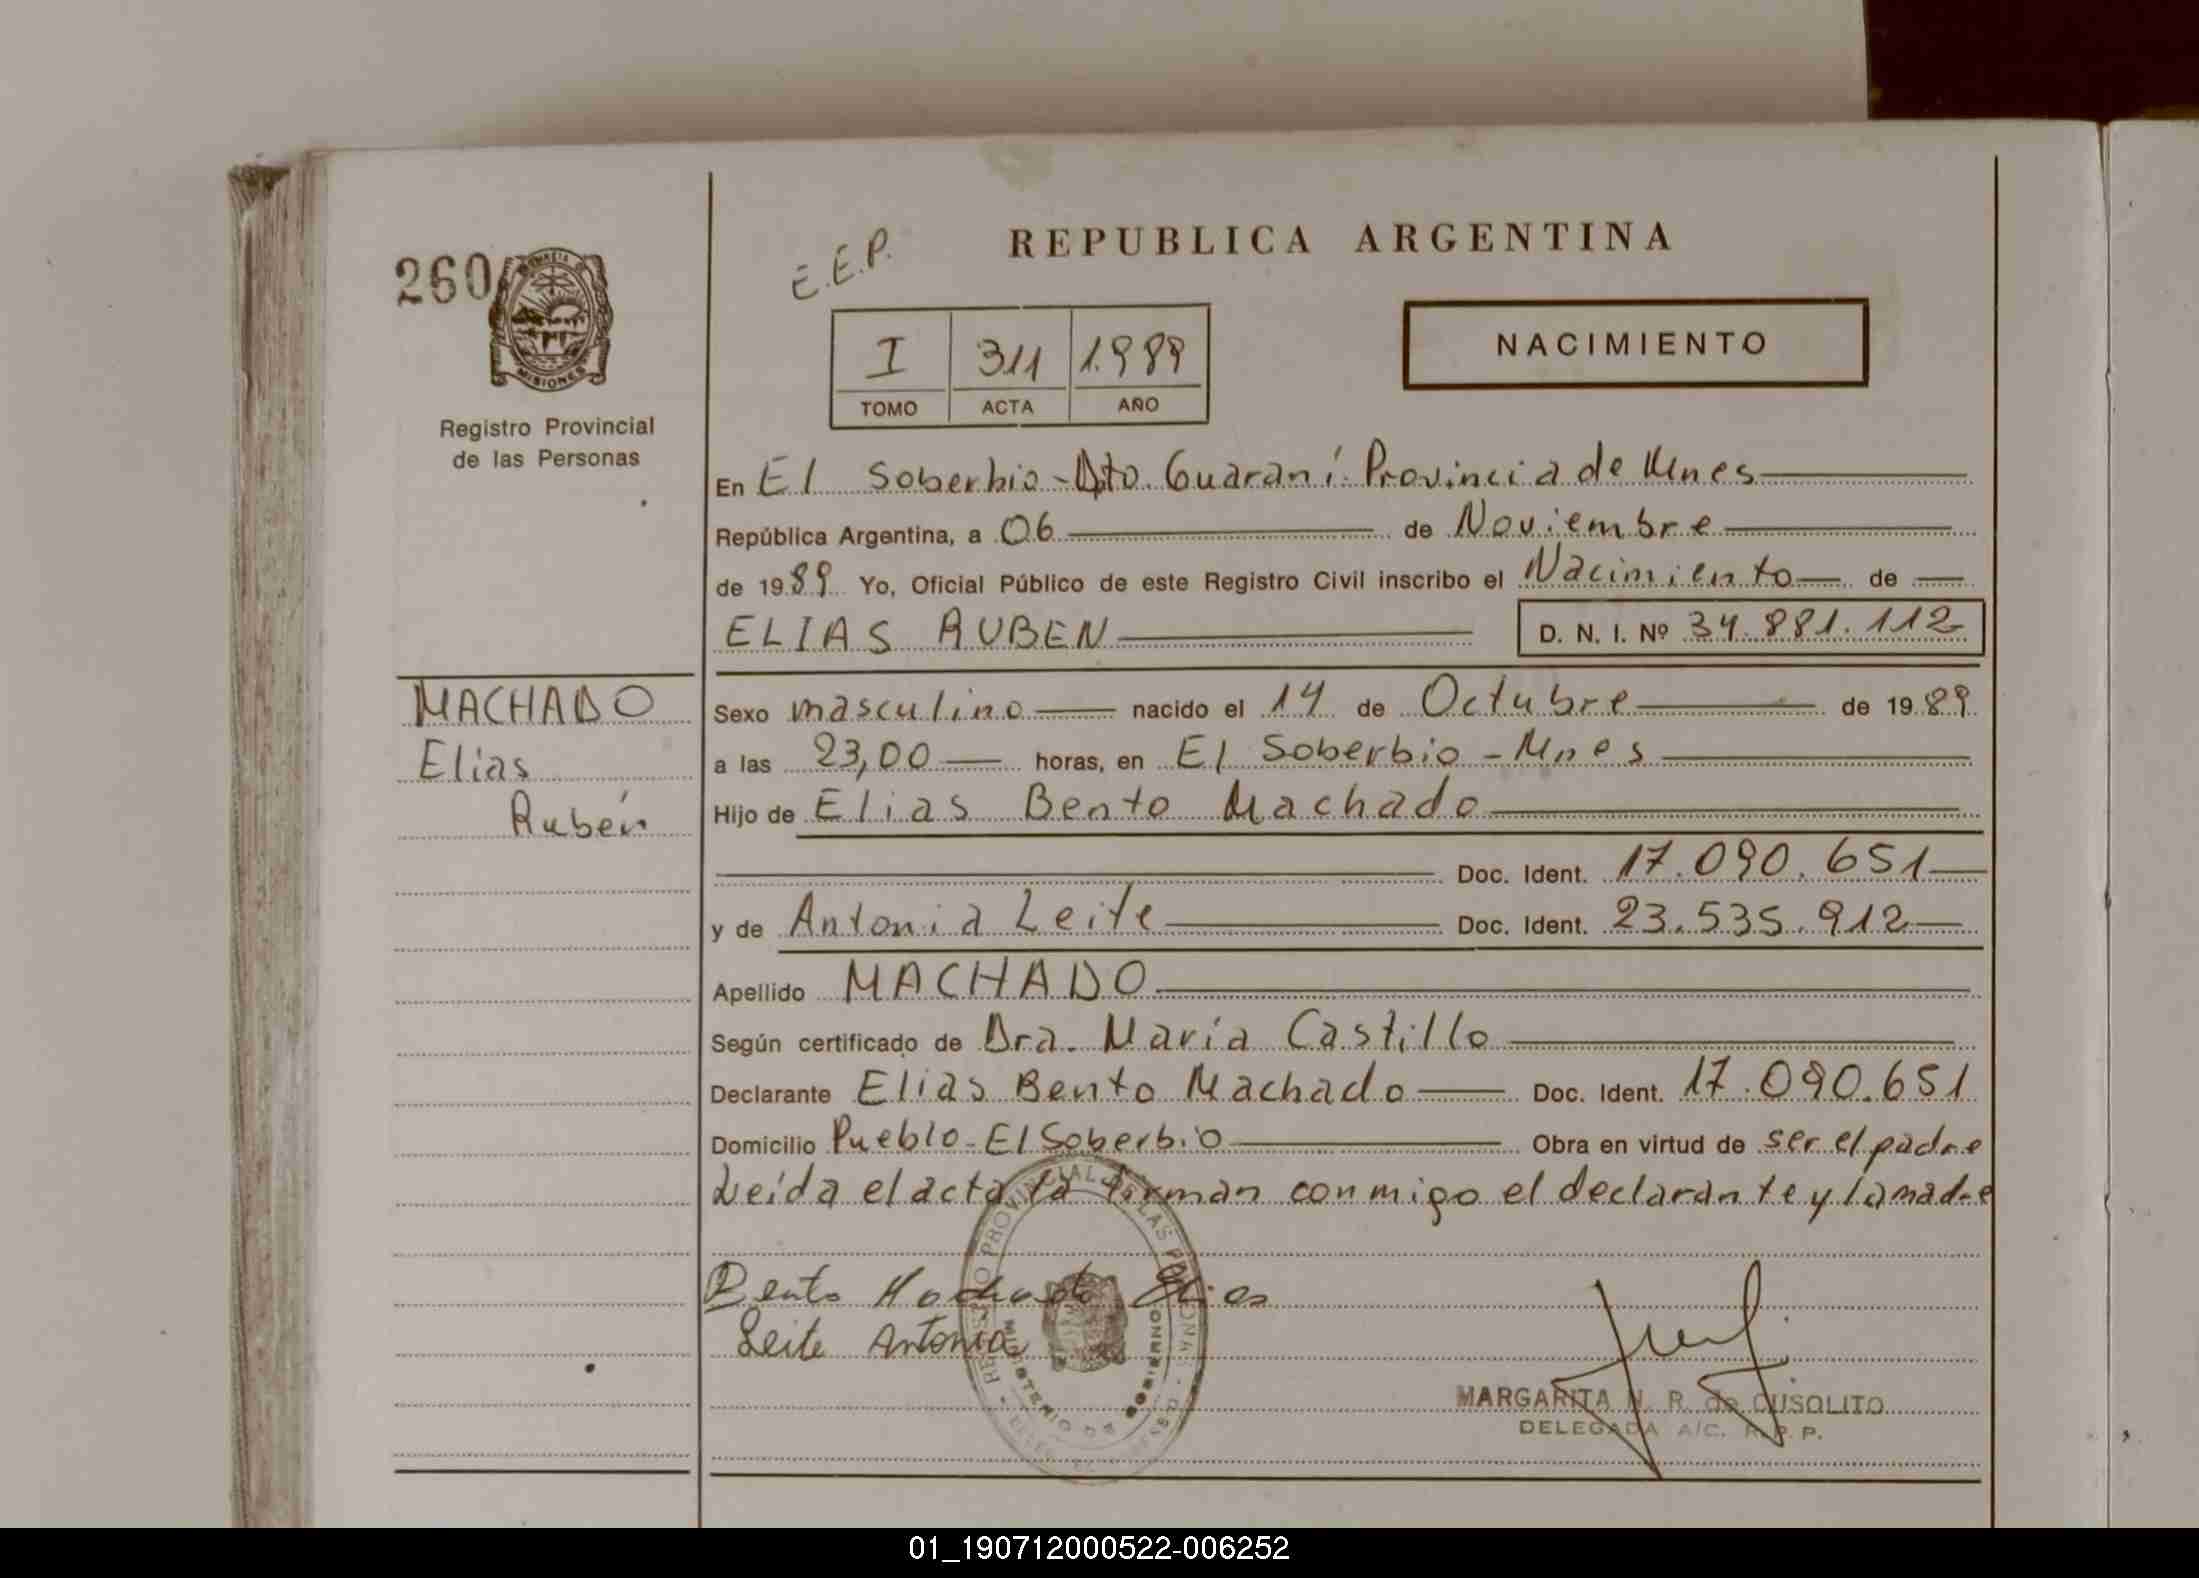 E.E.P.
REPUBLICA ARGENTINA
260
MISIONES
Registro Provincial
de las Personas
I 311 1.989
TOMO ACTA AÑO
NACIMIENTO
En El Soberbio - Dto. Guaraní. Provincia de Mnes
República Argentina, a 06 de Noviembre
de 1989 Yo, Oficial Público de este Registro Civil inscribo el Nacimiento de
ELIAS RUBEN D. N. I. Nº 34.881.112
MACHADO
Elias
Rubén
Sexo masculino nacido el 14 de Octubre de 1989
a las 23,00 horas, en El Soberbio - Mnes
Hijo de Elias Bento Machado
Doc. Ident. 17.090.651
y de Antonia Leite Doc. Ident. 23.535.912
Apellido MACHADO
Según certificado de Dra. María Castillo
Declarante Elias Bento Machado Doc. Ident. 17.090.651
Domicilio Pueblo - El Soberbio Obra en virtud de ser el padre
Leída el acta la firman conmigo el declarante y la madre
Bento Machado Elias
Leite Antonia
REGISTRO PROVINCIAL DE LAS PERSONAS
MINISTERIO DE GOBIERNO
MARGARITA N. R. de CUSOLITO
DELEGADA A/C. R. P. P.
01_190712000522-006252